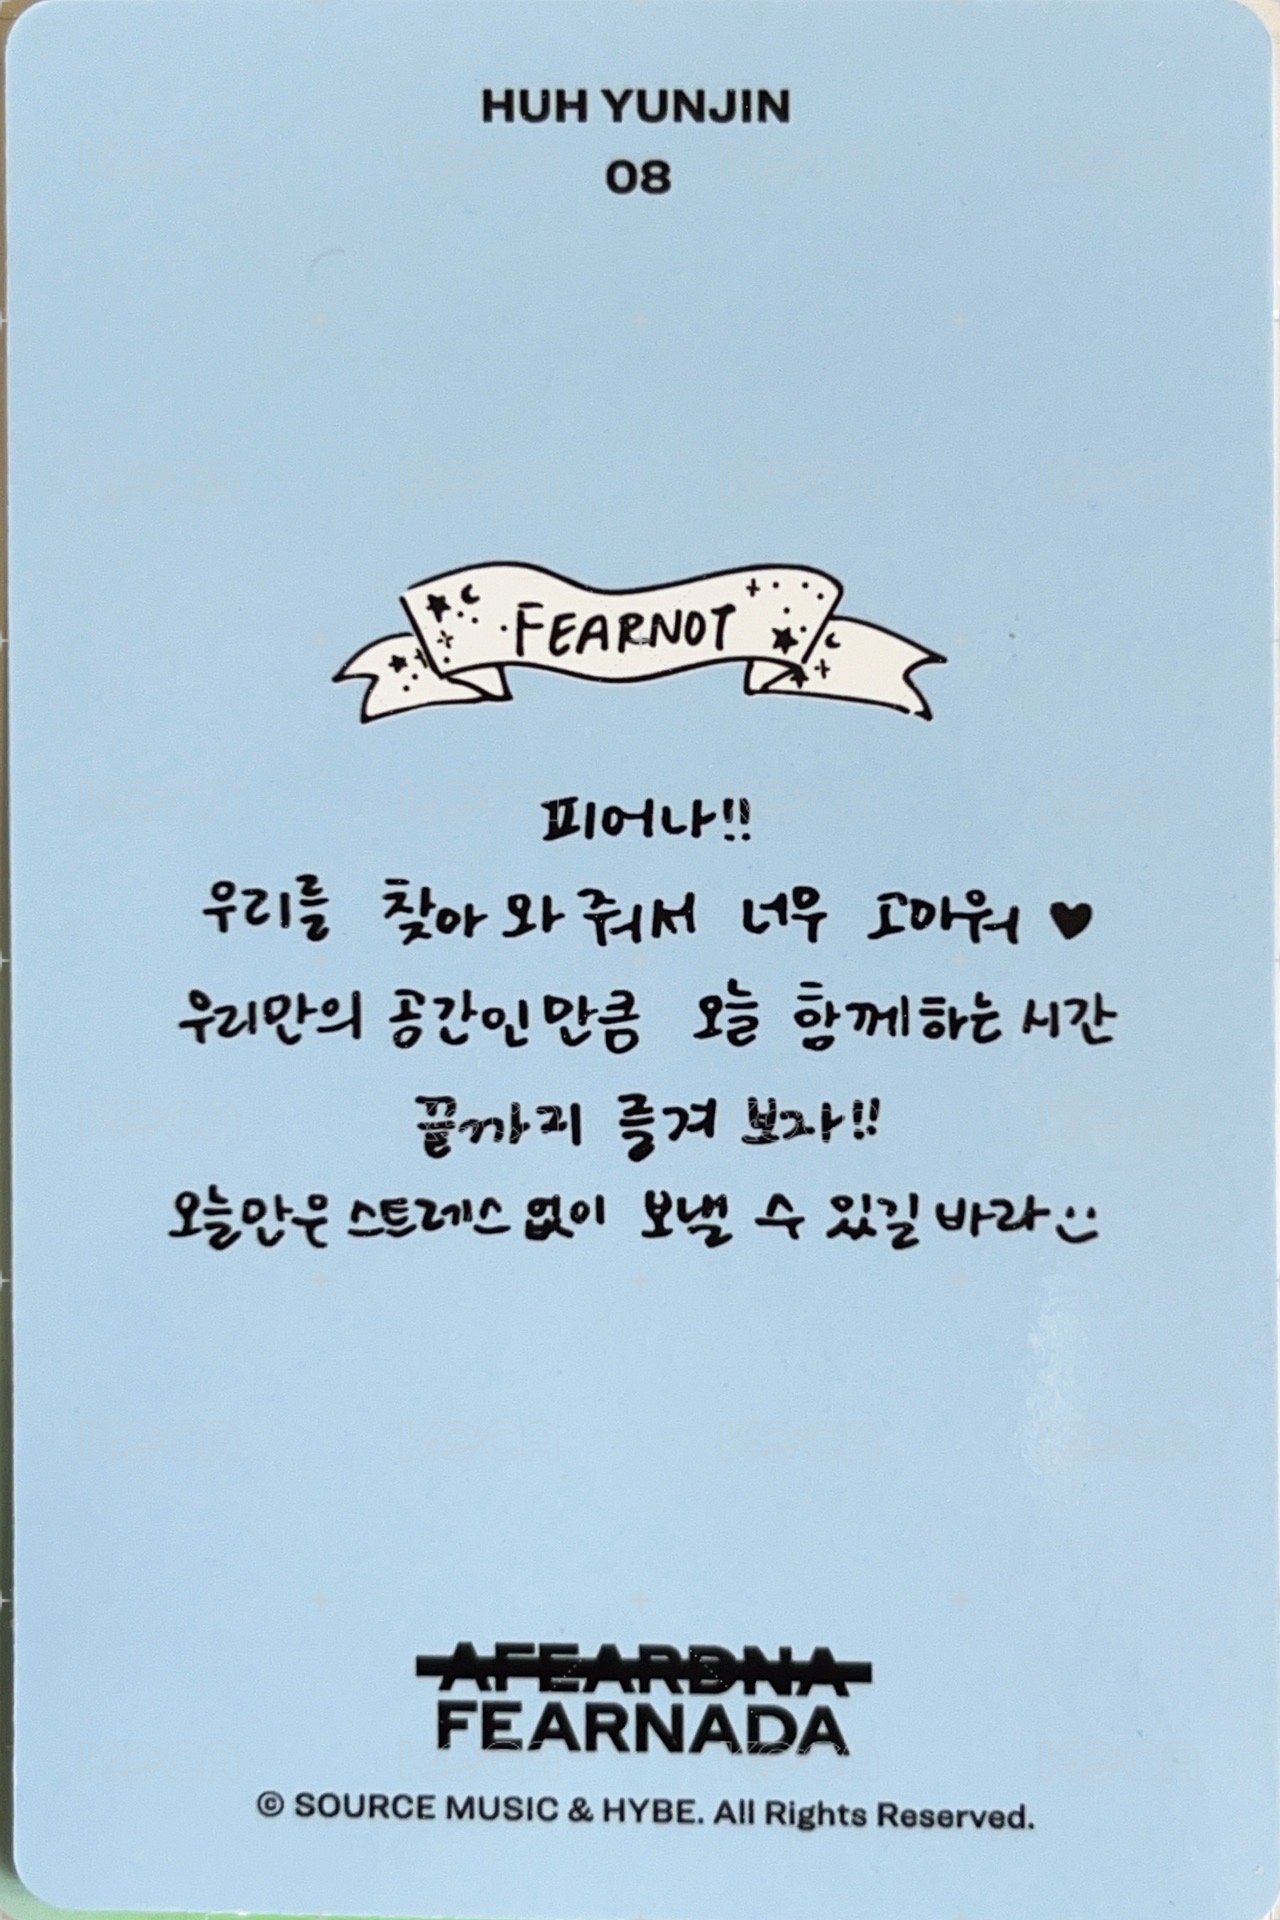 HUH YUNJIN
08
FEARNOT
피어나!!
우리를 찾아 와 줘서 너무 고마워 ♥
우리만의 공간인 만큼 오늘 함께하는 시간
끝까지 즐겨 보자!!
오늘만은 스트레스 없이 보낼 수 있길 바라 :)
AFEARDNA
FEARNADA
© SOURCE MUSIC & HYBE. All Rights Reserved.